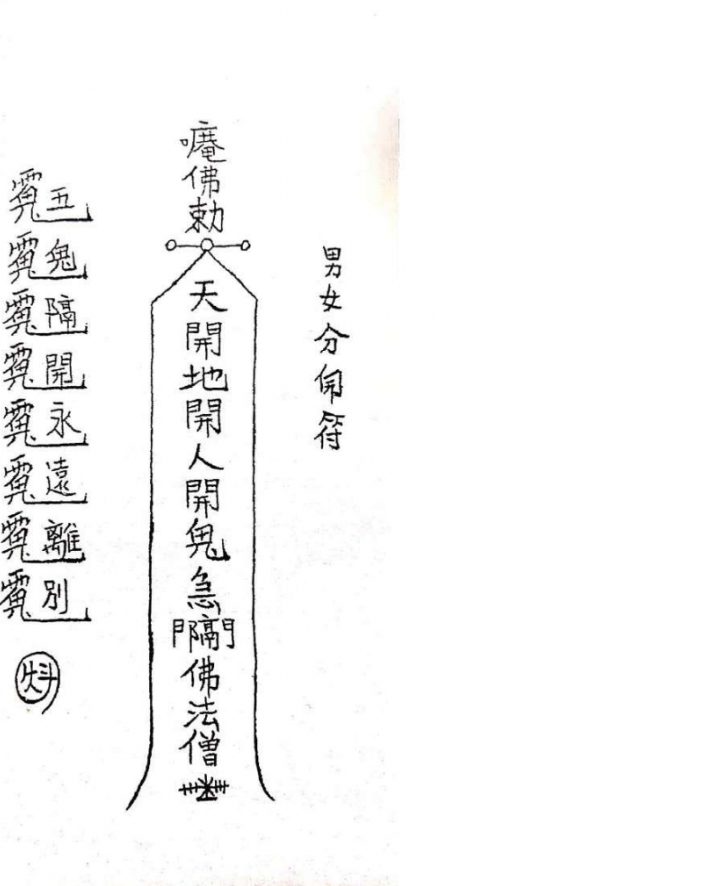 男女分開符
唵佛勅
天開地開人開鬼急隔佛法僧
五鬼隔開永遠離別
炓